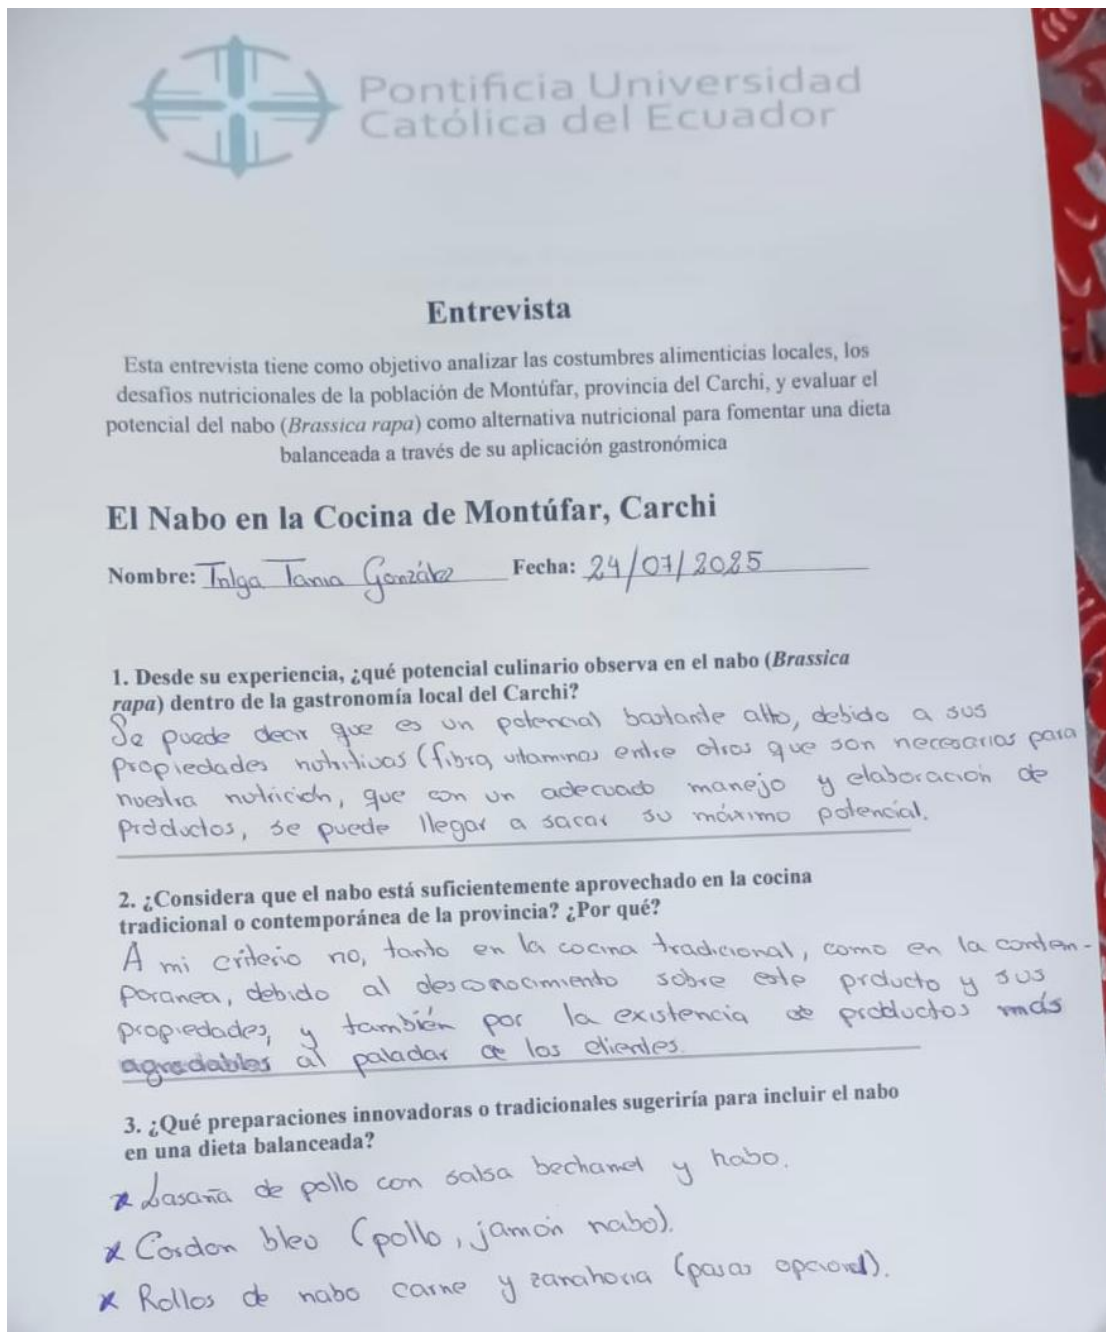 Pontificia Universidad
Católica del Ecuador
Entrevista
Esta entrevista tiene como objetivo analizar las costumbres alimenticias locales, los
desafíos nutricionales de la población de Montúfar, provincia del Carchi, y evaluar el
potencial del nabo (Brassica rapa) como alternativa nutricional para fomentar una dieta
balanceada a través de su aplicación gastronómica
El Nabo en la Cocina de Montúfar, Carchi
Nombre: Tnlga Tania González Fecha: 24/07/2025
1. Desde su experiencia, ¿qué potencial culinario observa en el nabo (Brassica
rapa) dentro de la gastronomía local del Carchi?
Se puede decir que es un potencial bastante alto, debido a sus
propiedades nutritivas (fibra, vitaminas entre otros que son necesarias para
nuestra nutrición, que con un adecuado manejo y elaboración de
productos, se puede llegar a sacar su máximo potencial.
2. ¿Considera que el nabo está suficientemente aprovechado en la cocina
tradicional o contemporánea de la provincia? ¿Por qué?
A mi criterio no, tanto en la cocina tradicional, como en la contem-
poranea, debido al desconocimiento sobre este producto y sus
propiedades, y también por la existencia de productos más
agradables al paladar de los clientes.
3. ¿Qué preparaciones innovadoras o tradicionales sugeriría para incluir el nabo
en una dieta balanceada?
* Lasaña de pollo con salsa bechamel y nabo.
* Cordon bleu (pollo, jamón nabo).
* Rollos de nabo carne y zanahoria (pasas opcional).